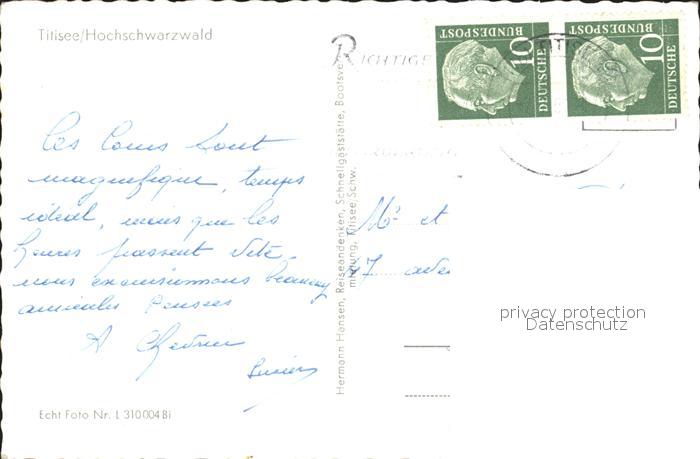 Titisee/Hochschwarzwald
RICHTIGE
DEUTSCHE
BUNDESPOST
10
DEUTSCHE
BUNDESPOST
10
TITIS
Les sont
magnifique, temps
idéal, mais que les
heures passent vite
nous excursionnons beaucoup
amicales Pensées
A
Echt Foto Nr. L 310004 Bi
Hermann Hansen, Reiseandenken, Schnellgaststätte, Bootsve
Titisee/Schw.
Mr et
47 ave
privacy protection
Datenschutz